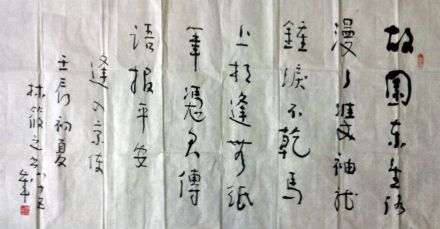 故園東望路
漫漫雙袖龍
鍾淚不乾馬
上相逢無紙
筆憑君傳
語報平安
逢入京使
壬辰初夏
林筱之書八十五